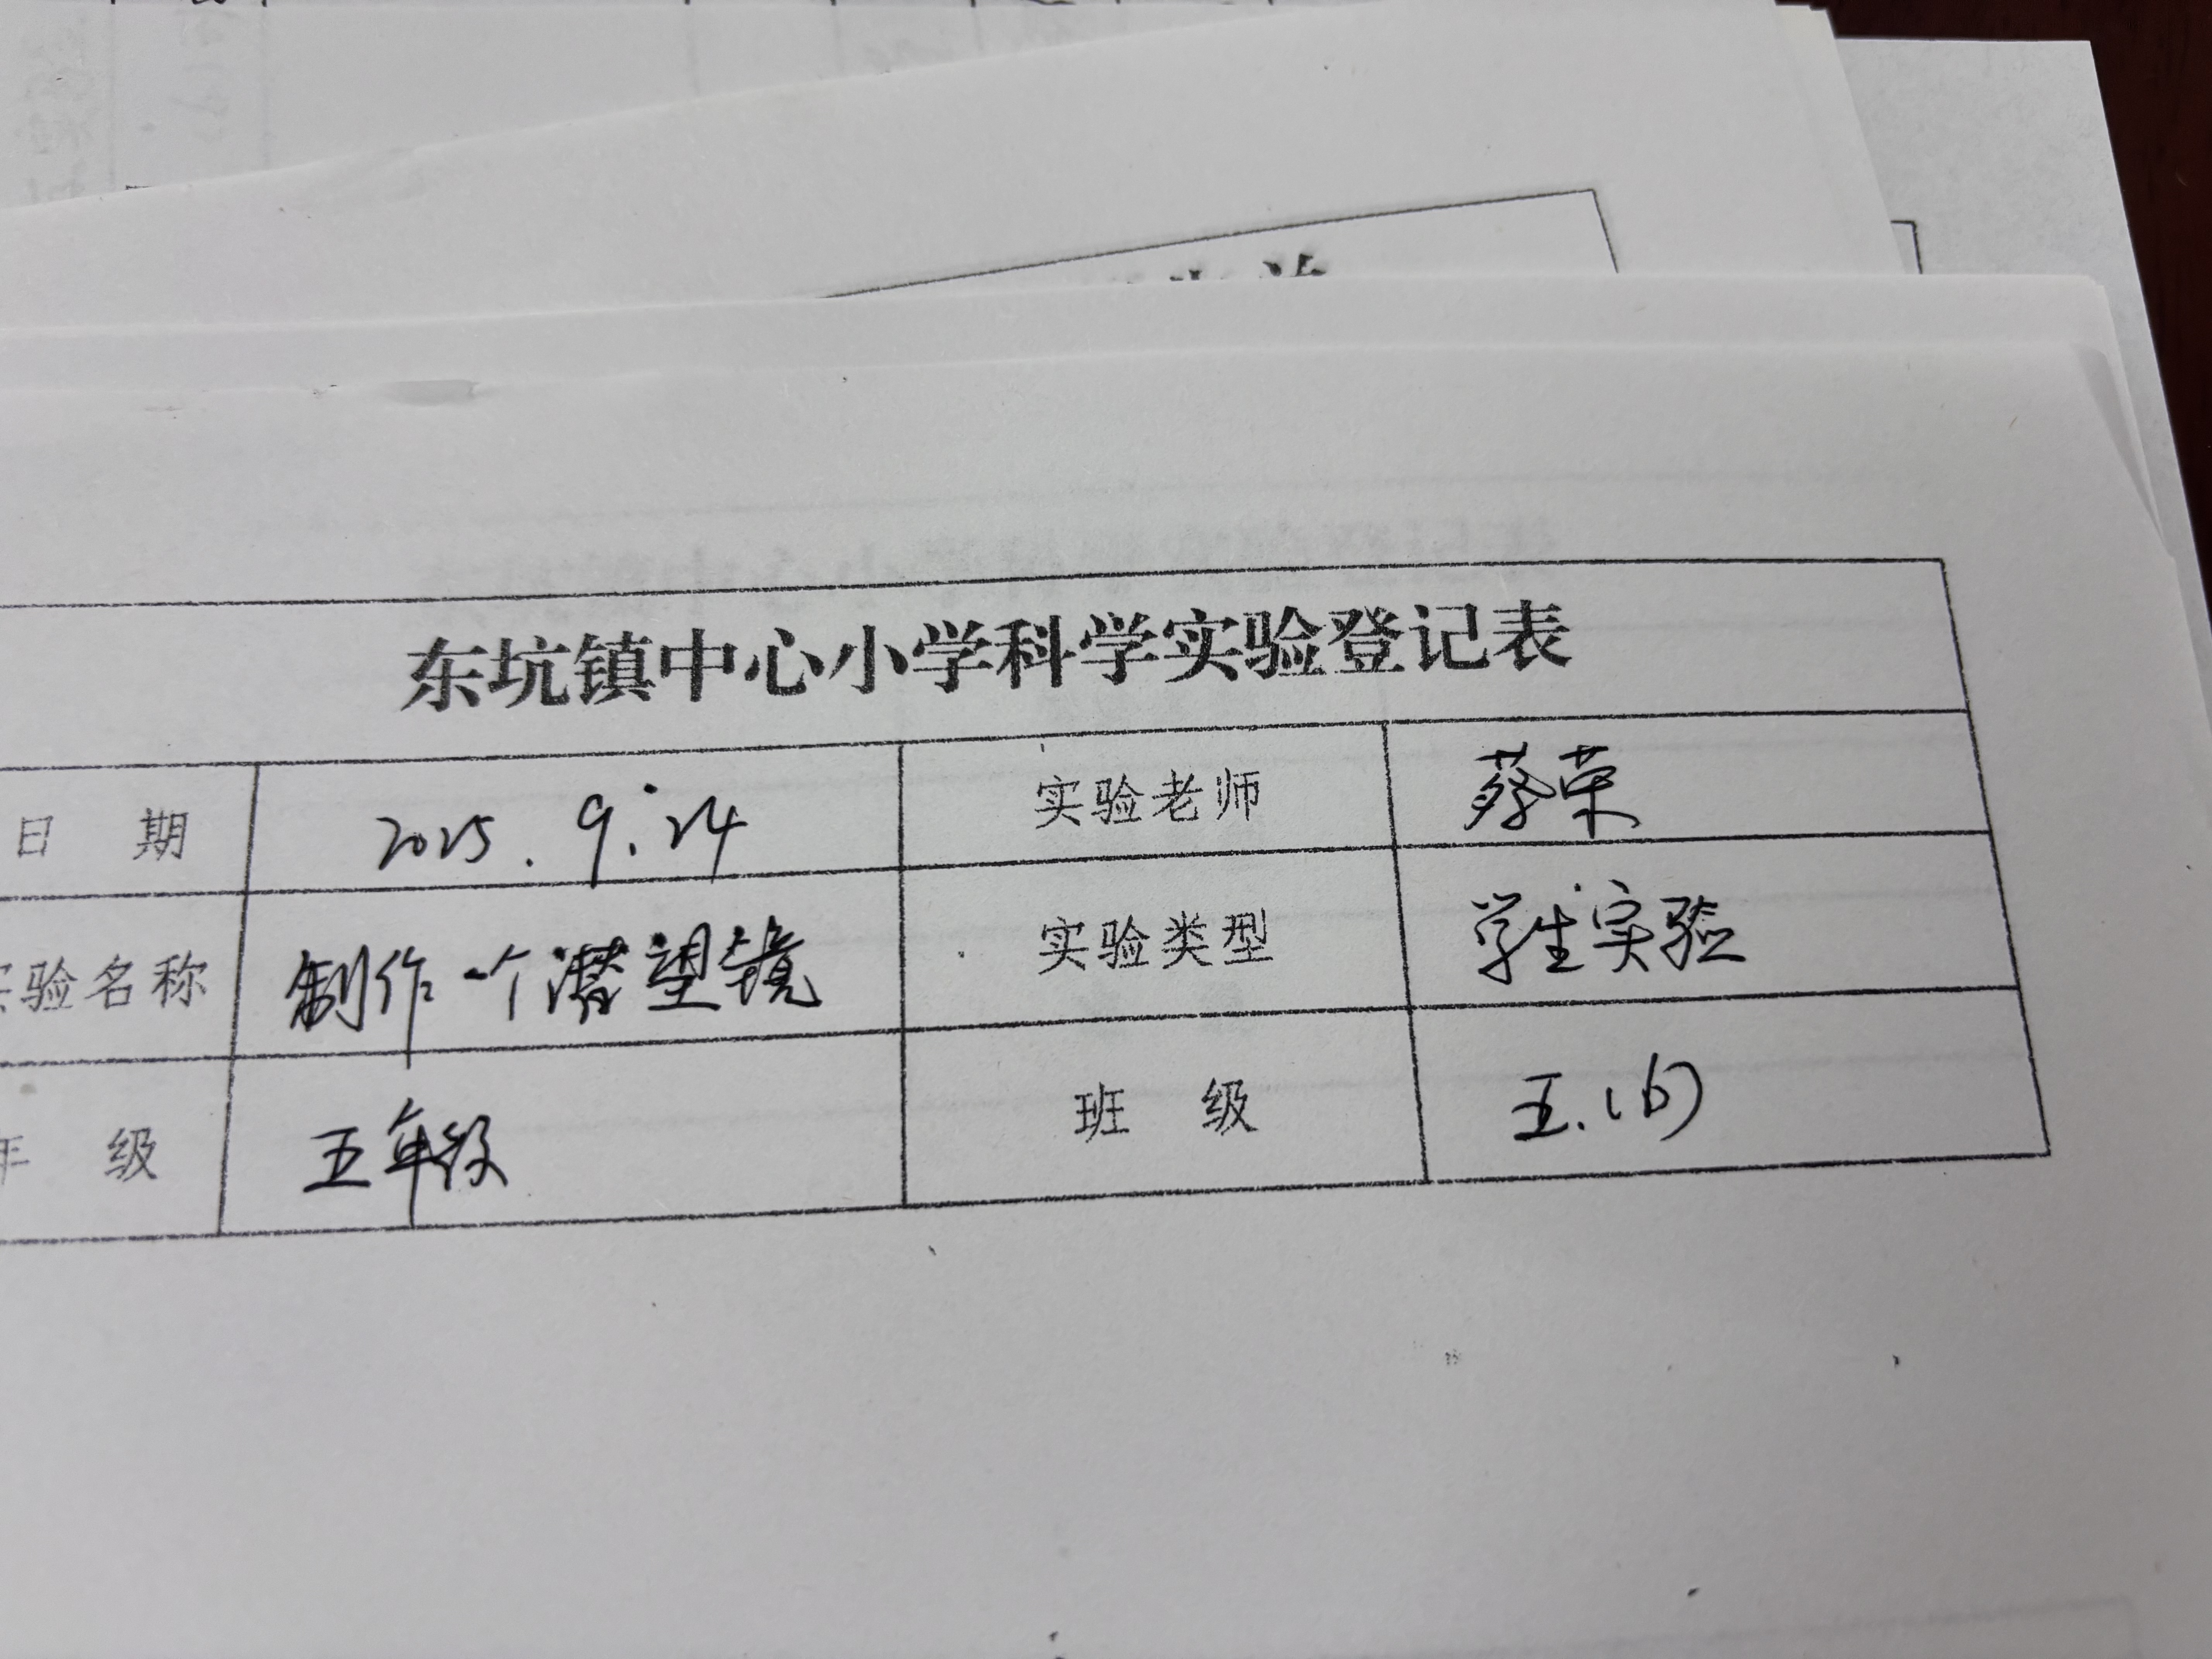 东坑镇中心小学科学实验登记表
日 期 2025.9.24 实验老师 蔡荣
实验名称 制作一个潜望镜 实验类型 学生实验
年 级 五年级 班 级 五.(6)